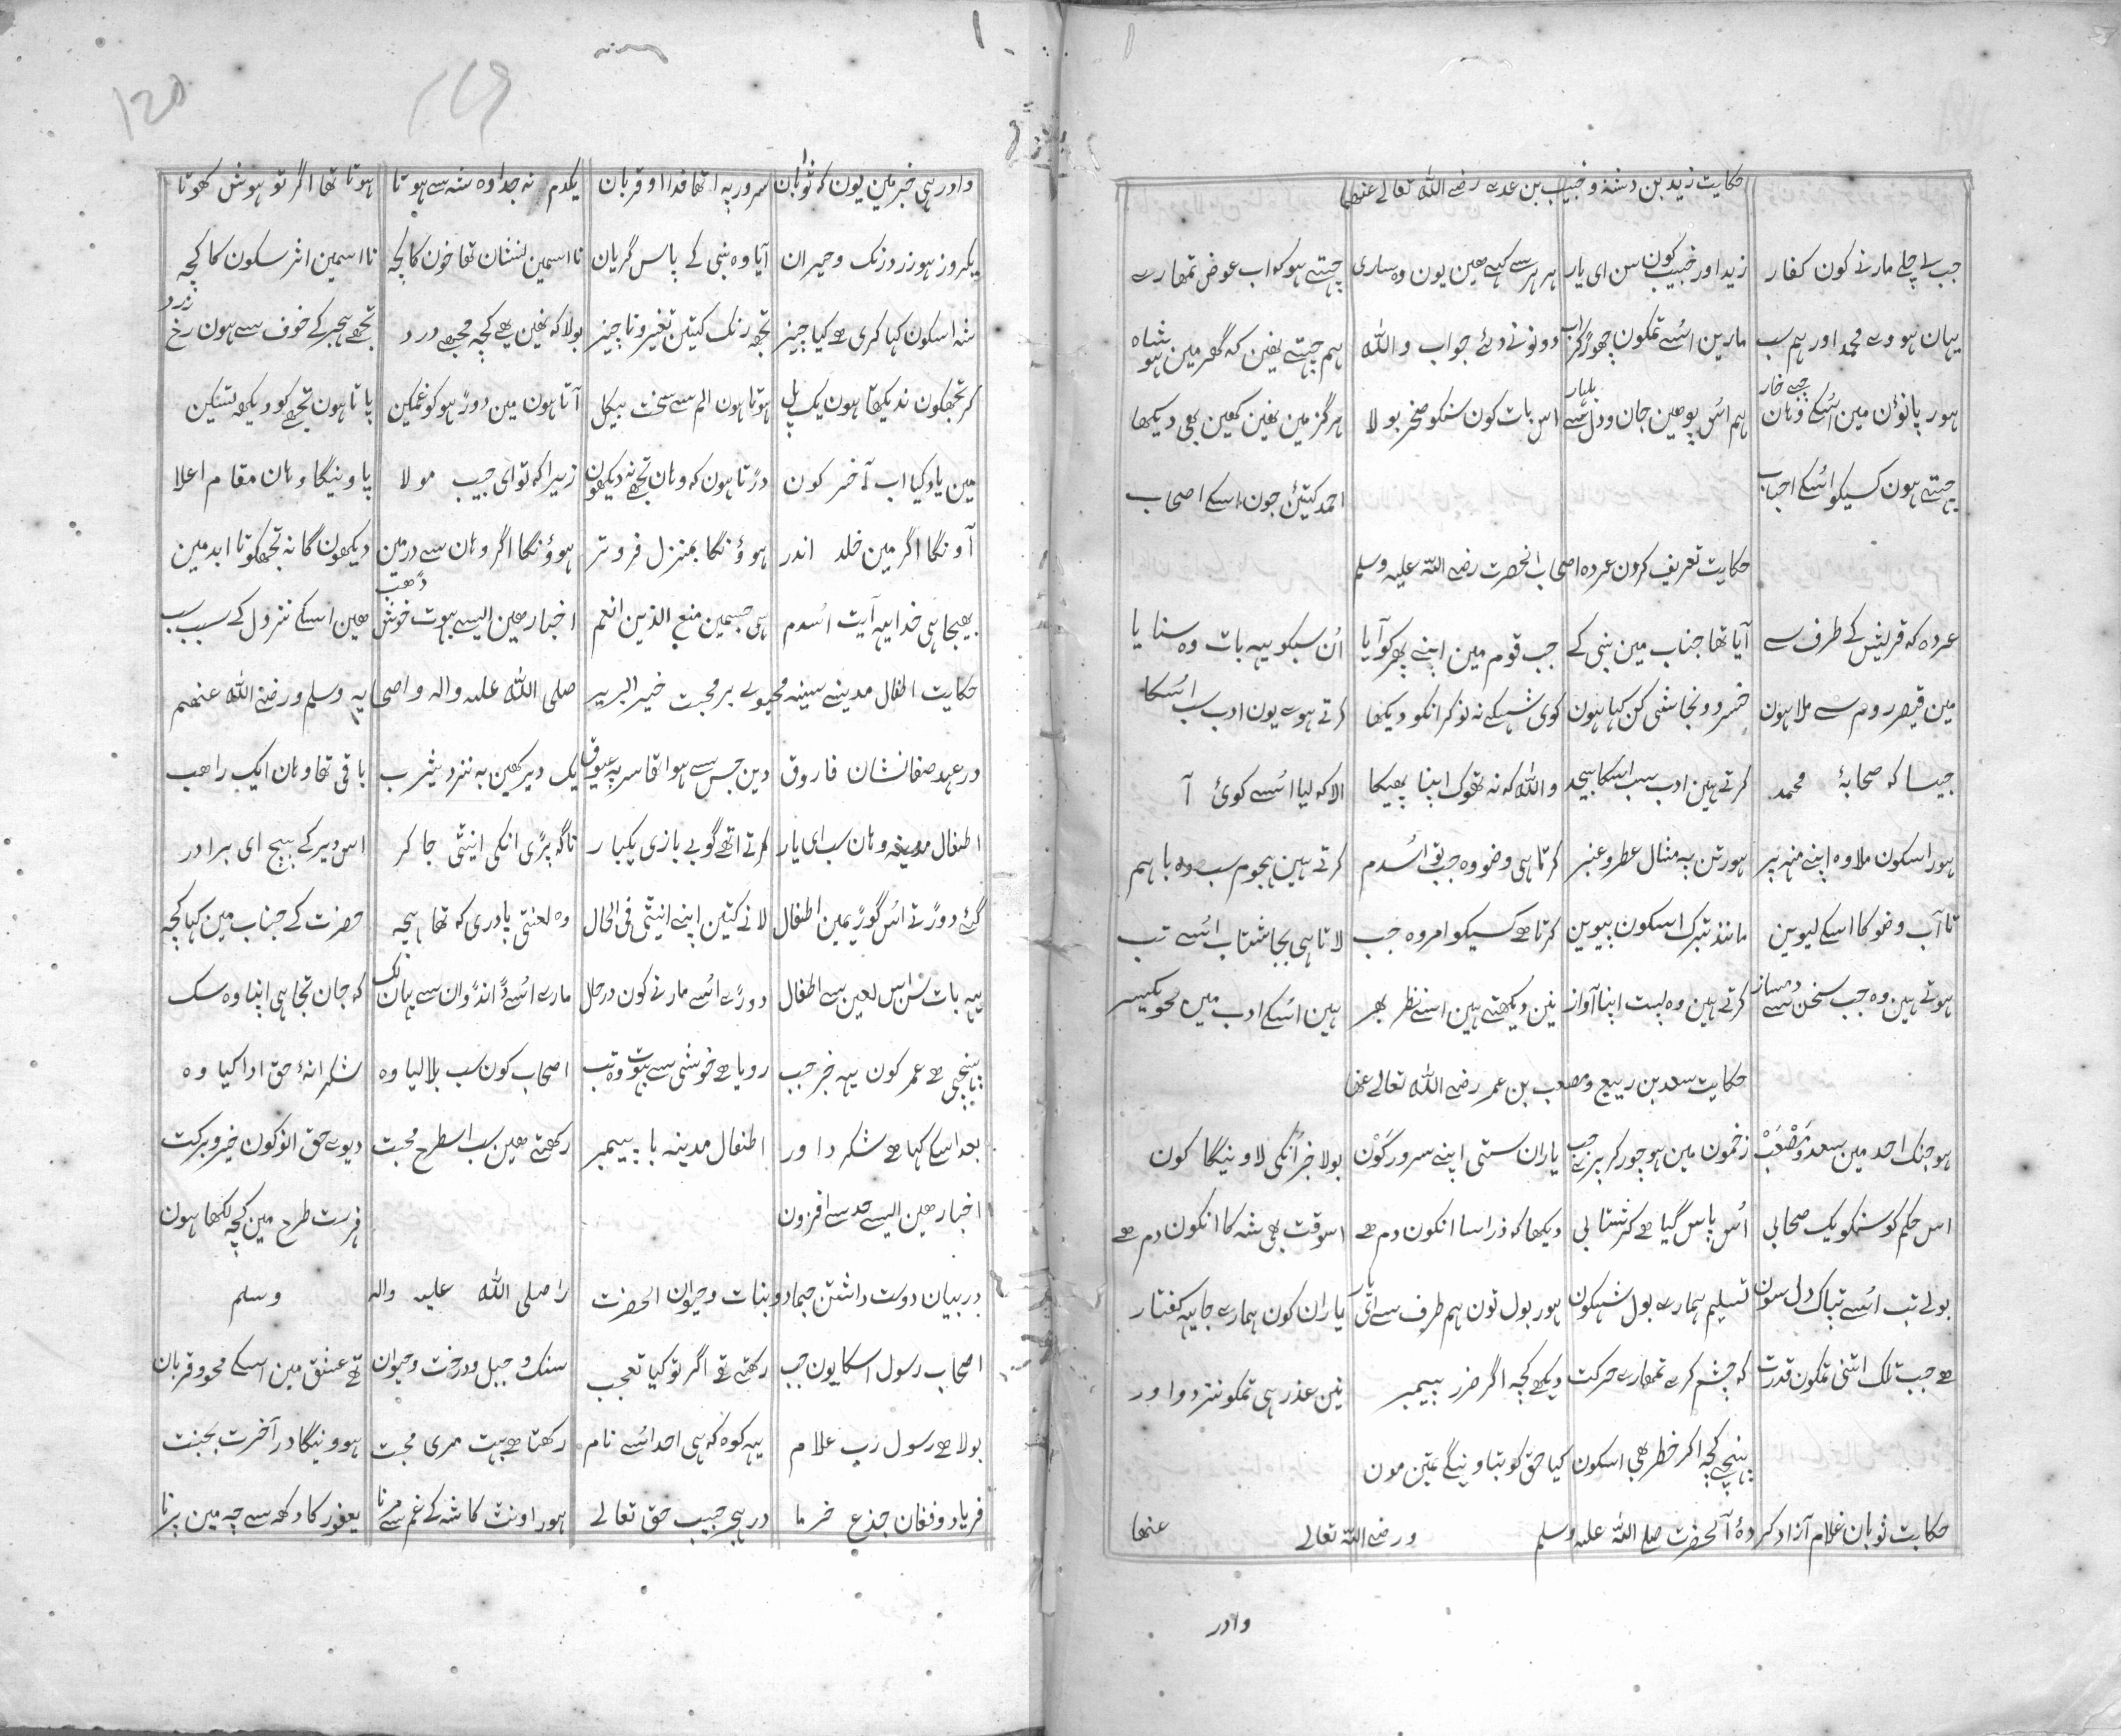 حکایت زید بن دشنه و خبیب بن عدے رضے اللہ تعالے عنھما
جب لے چلے مارنے کون کفار زید اور خبیب کون سن ای یار ہر ہر سے کہے ھین یون وہ ساری چہتے ہو کہ اب عوض تمھارے
یہان ہووے محمد اور ہم سب مارین اُسے تمکون چھوڑ کر اب دونو نے دئے جواب واللہ ہم چہتے نھین کہ گھر مین ہو شاہ
ہور پانوُن مین اُسکے وہان چبے خار ہم اُس پو ھین جان و دل سے بلہار اس بات کون سنکو صخر بولا ہرگز مین نھین کھین بھی دیکھا
چہتے ہون کسیکو اُسکے احباب احمد کیتئن جون اسکے اصحاب
حکایت تعریف کردن عروہ اصحاب انحضرت رضے اللہ علیہ وسلم
عروہ کہ قریش کے طرف سے آیا تھا جناب مین نبی کے جب قوم مین اپنے پھر کو آیا اُن سبکو یہہ بات وہ سنایا
مین قیصر روم سے ملا ہون خسرو و نجاشی کن کیا ہون کوی شہ کے نہ نوکر انکو دیکھا کرتے ہوے یون ادب سب اُسکا
جیسا کہ صحابۂ محمد کرتے ہین ادب سب اسکا بیحد واللہ کہ نہ تھوک اپنا پھیکا الا کہ لیا اُسے کوئ آ
ہور اسکون ملا وہ اپنے منہہ پر ہور تن پہ مثال عطر و عنبر کرتا ہی وضو وہ جب تو اُسدم کرتے ہین ہجوم سب وہ باہم
تا آب وضو کا اسکے لیوین مانند تبرک اسکون پیوین کرتا ھے کسیکو امر وہ جب لاتا ہی بجا شتاب اُسے تب
ہوتے ہین وہ جب سخن سے دمساز کرتے ہین وہ پست اپنا آواز نین دیکھتے ہین اسنے نظر بھر ہین اُسکے ادب مین محو یکسر
حکایت سعد بن ربیع و مصعب بن عمر رضے اللہ تعالے عنھا
ہو جنگ احد مین سعد و مُصْعَبْ زخمون مین ہو چور کر پرے جب یاران ستی اپنے سرور گوْن بولا خبر اُنکی لاونیگا کون
اس حکم کو سنکو یک صحابی اُس پاس گیا ھے کر شتابی دیکھا کہ ذرا سا انکون دم ھے اسوقت بھی شہ کا انکون دم ھے
بولے تب اُسے تپاک دل سون تسلیم ہمارے بول شہ کون ہور بول تون ہم طرف سے ای یار یاران کون ہمارے جا یہہ گفتار
ھے جب تلک اتنی تمکون قدرت کہ چشم کرے تمھارے حرکت دیکھے کچہ اگر ضرر پیمبر نین عذر ہی تمکو نزد داور
پنہچے کچہ اگر خطر بھی اسکون کیا حق کو بتاونیگے تمین مون
حکایت ثوبان غلام آزاد کردۂ آنحضرت صلے اللہ علیہ وسلم و رضے اللہ تعالے عنھا
وادر
وادر ہی خبر مین یون کہ ثوبان سرور پہ اتھا فدا او قربان یکدم نہ جدا وہ شہ سے ہوتا ہوتا تھا اگر تو ہوش کھوتا
یکروز ہو زرد رنگ و حیران آیا وہ نبی کے پاس گریان نا اسمین نشان تھا خون کا کچہ نا اسمین اثر سکون کا کچہ
شہ اسکون کہا کری ھے کیا چیز تجھ رنگ کیتین تغیر و ناچیز بولا کہ نھین ھے کچہ مجھے درد تجھے ہجر کے خوف سے ہون رخ زرد
کر تجھکون ندیکھتا ہون یک پل ہوتا ہون الم سے سخت بیکل آتا ہون مین دوڑ ہو کو غمگین پاتا ہون تجھے کو دیکھہ تسکین
مین یاد کیا اب آخر کون درْتا ہون کہ وہان تجھے نہ دیکھون زیرا کہ تو ای حبیب مولا پاونیگا وہان مقام اعلا
آونگا اگر مین خلد اندر ہوؤنگا بمنزل فروتر ہوؤنگا اگر وہان سے در مین دیکھون گا نہ تجھکو تا ابد مین
بھیجا ہی خدا یہہ آیت اُسدم ہی جسمین منع الذین انعم اخبار ھین ایسے بہوت خوش دھب ھین اسکے نزول کے سبب سب
حکایت اطفال مدینہ سینہ محبوبے بر محبت خیر البریہ صلی اللہ علیہ والہ و اصحابہ وسلم و رضے اللہ عنھم
در عہد صفا نشان فاروق دین جس سے ہوا تھا سر بہ عیوق یک دیر کھین بہ نزد یثرب باقی تھا وہان ایک راھب
اطفال مدینہ وہان سب ای یار کرتے اتھے گوے بازی یکبار ناگہ پڑی انکی اینٹی جا کر اس دیر کے بیچ ای برادر
گئے دوڑتے اُس گوڑیمین اطفال لانے کتین اپنے اینٹی فی الحال وہ لعنتی پادری کہ تھا ہیچہ حضرت کے جناب مین کہا کچہ
یہہ بات سن اس لعین سے اطفال دوڑے اُسے مارنے کون درحال مارے اُسے ڈانڈوان سے یہان لگ کہ جان تجا ہی اپنا وہ سگ
پہنچی ھے عمر کون یہہ خبر جب رویا ھے خوشی سے بہوت وہ تب اصحاب کون سب بلا لیا وہ شکرانۂ حق ادا کیا وہ
بعد اسکے کہا ھے شکر داور اطفال مدینہ با پیمبر رکھتے ھین سب اسطرح محبت دیوے حق انو کون خیر و برکت
اخبار ھین ایسے حد سے افزون فرست طرح مین کچہ لکھا ہون
در بیان دوست داشتن جماد و بنات و حیوان الحضرت را صلی اللہ علیہ والہ وسلم
اصحاب رسول اسکا یون جب رکھتے تھے اگر تو کیا تعجب سنگ و جبل و درخت و حیوان تھے عشق مین اسکے محو و قربان
بولا ھے رسول رب علام یہہ کوہ کہ ہی احد اُسے نام رکھتا ھے بہت مری محبت ہوونیگا در آخرت بجنت
فریاد و فغان جذع خرما در ہجر حبیب حق تعالے ہور اونٹ کا شہ کے غم سے مرنا یعفور کا دکھ سے چہ مین پرنا